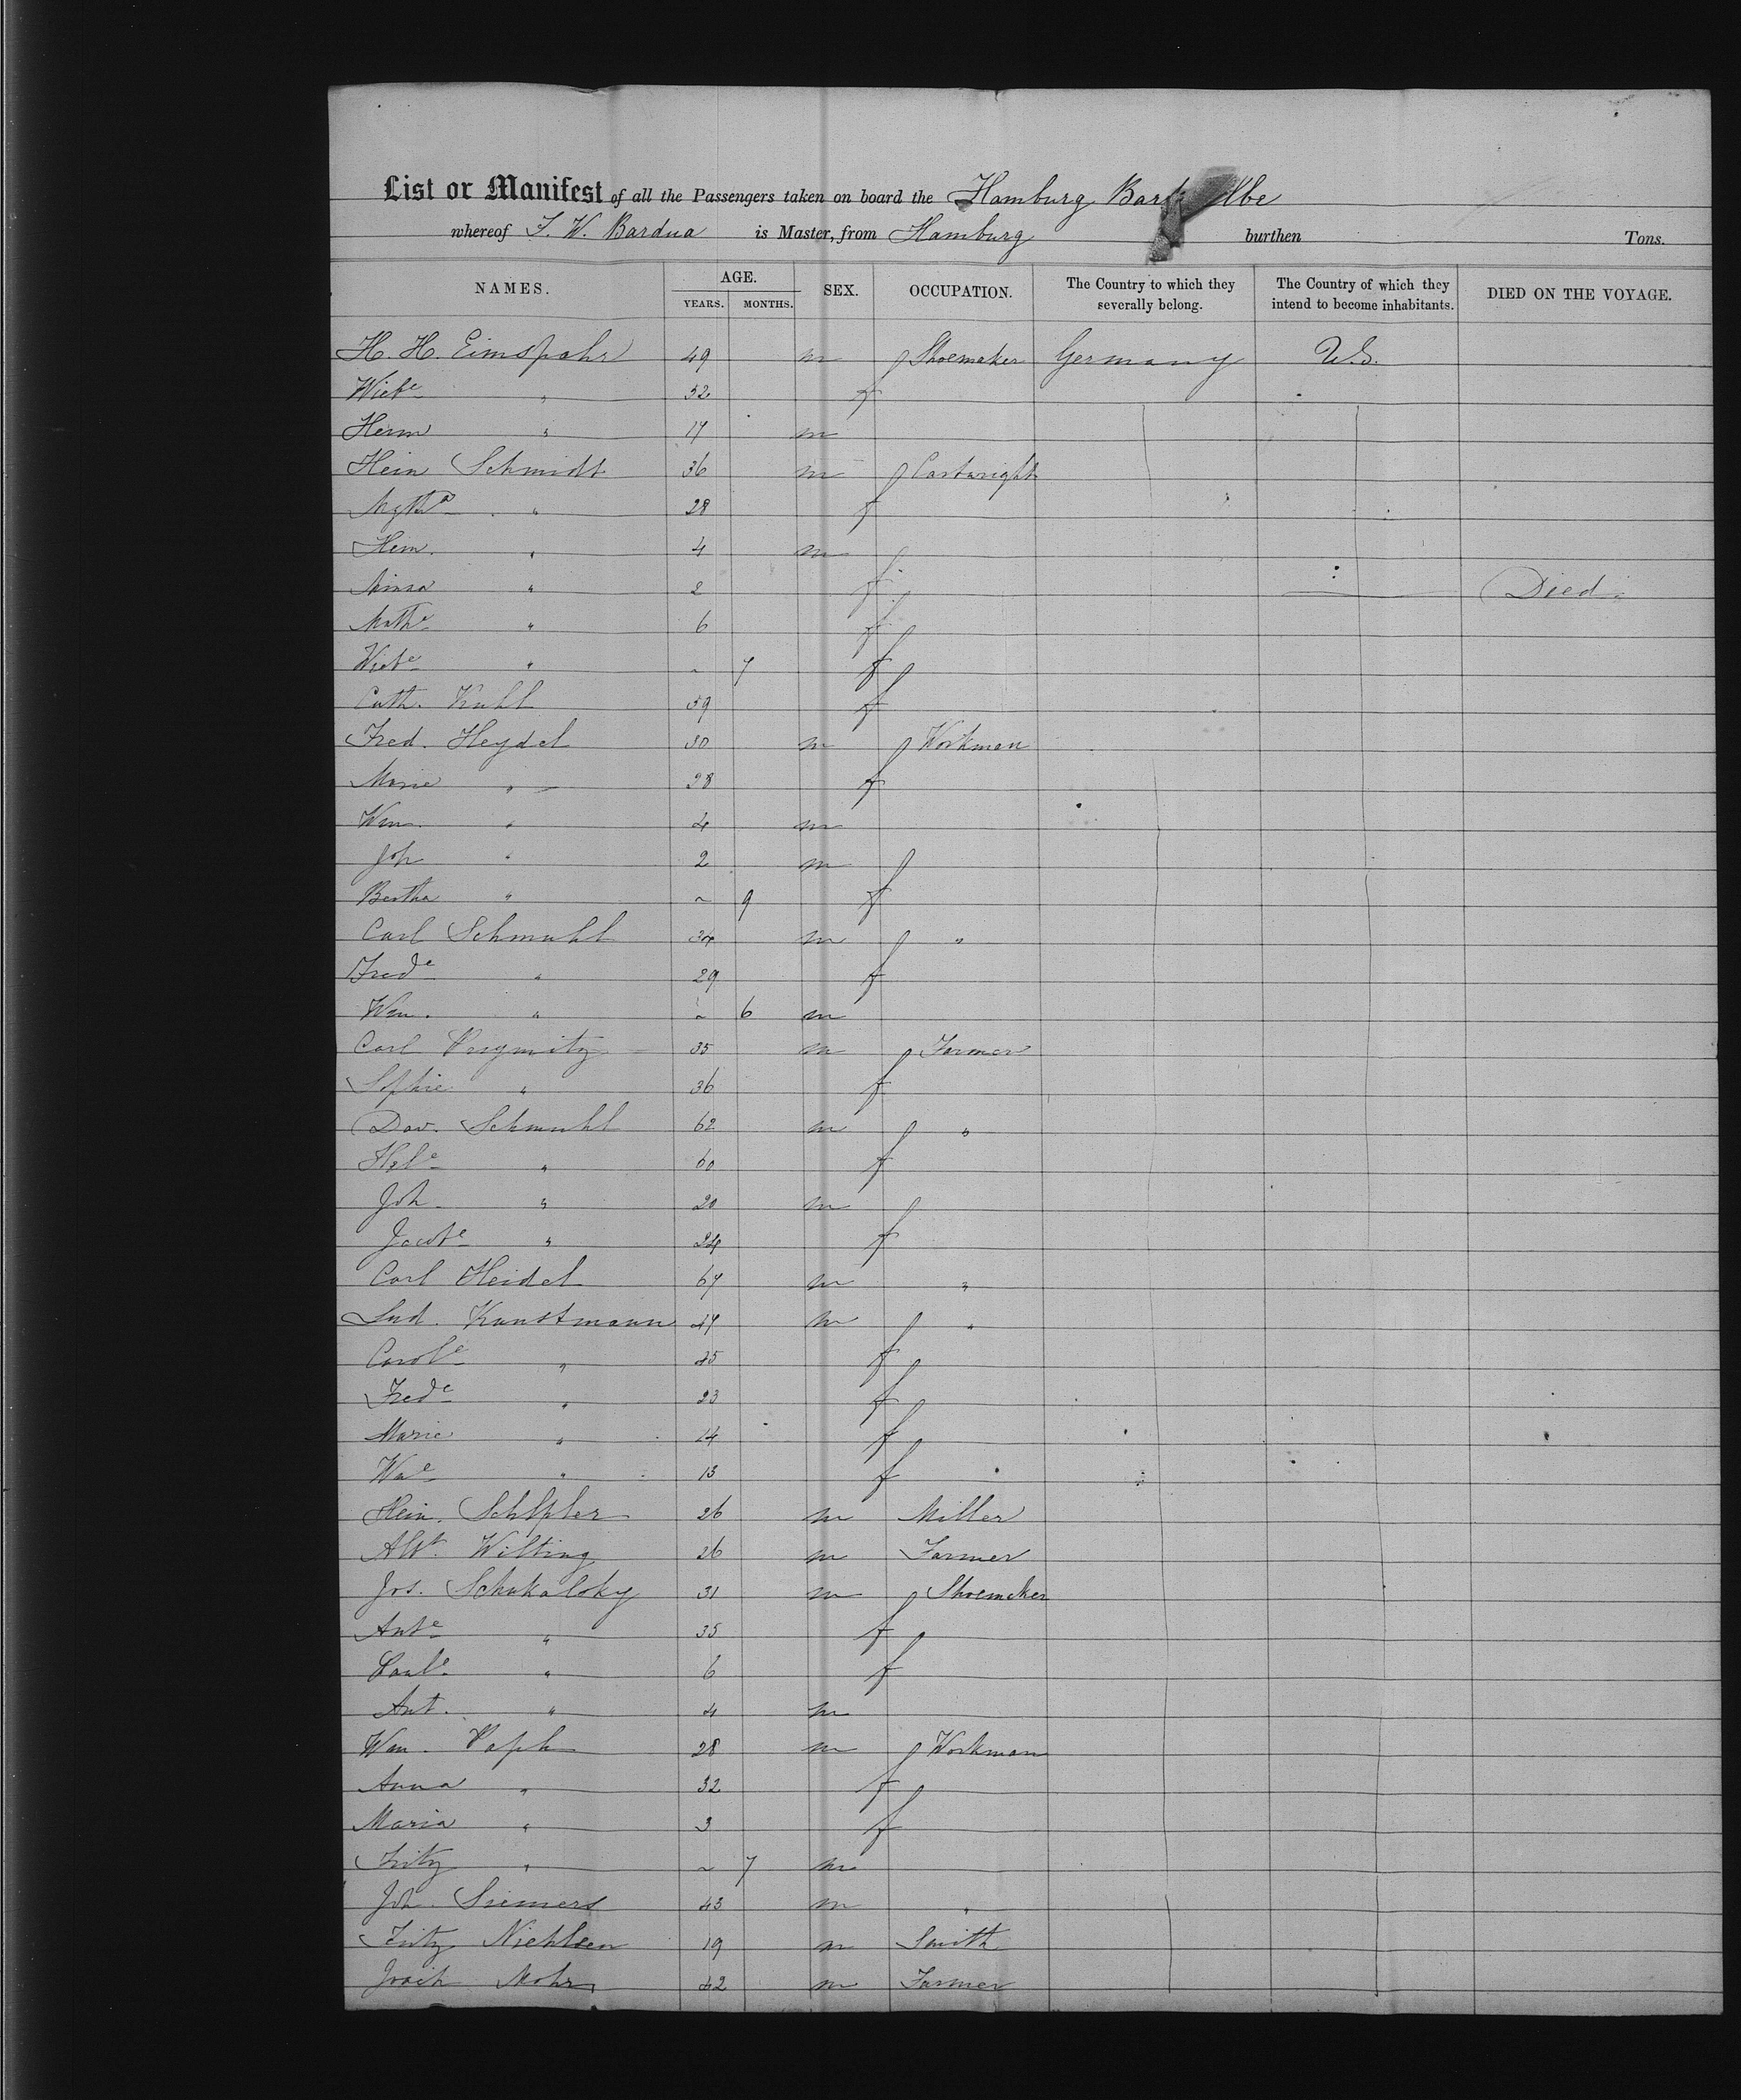 List or Manifest of all the Passengers taken on board the Hamburg Bark Elbe
whereof F. W. Bardua is Master, from Hamburg burthen Tons.
NAMES. AGE. YEARS. MONTHS. SEX. OCCUPATION. The Country to which they severally belong. The Country of which they intend to become inhabitants. DIED ON THE VOYAGE.
H. H. Eimspahr 49 m Shoemaker Germany U.S.
Wiebe " 52 f
Herm " 17 m
Hein Schmidt 36 m Cartwright
Mgtha " 28 f
Hem. " 4 m
Minna " 2 f Died
Mathe " 6 f
Wiebe " ~ 7 f
Cath. Kuhl 59 f
Fred. Heydel 30 m Workman
Marie " 28 f
Wm. " 4 m
Joh " 2 m
Bertha " ~ 9 f
Carl Schmuhl 34 m "
Frede " 29 f
Wm. " ~ 6 m
Carl 35 m Farmer
Sophie " 36 f
Dav. Schmuhl 62 m "
Hele " 60 f
Joh. " 20 m
Jacobe " 24 f
Carl Heidel 67 m "
Lud. Kunstmann 47 m "
Carole " 45 f
Frede " 23 f
Marie " 14 f
Wme " 13 f
Hein. 26 m Miller
Albt. Wilting 26 m Farmer
Jos. Schukalsky 31 m Shoemaker
Ante " 35 f
Paule " 6 f
Ant. " 4 m
Wm. Papk 28 m Workman
Anna " 32 f
Maria " 3 f
Fritz " ~ 7 m
Joh. Siemers 43 m "
Fritz Niehlsen 19 m Smith
Joach Mohr 42 m Farmer